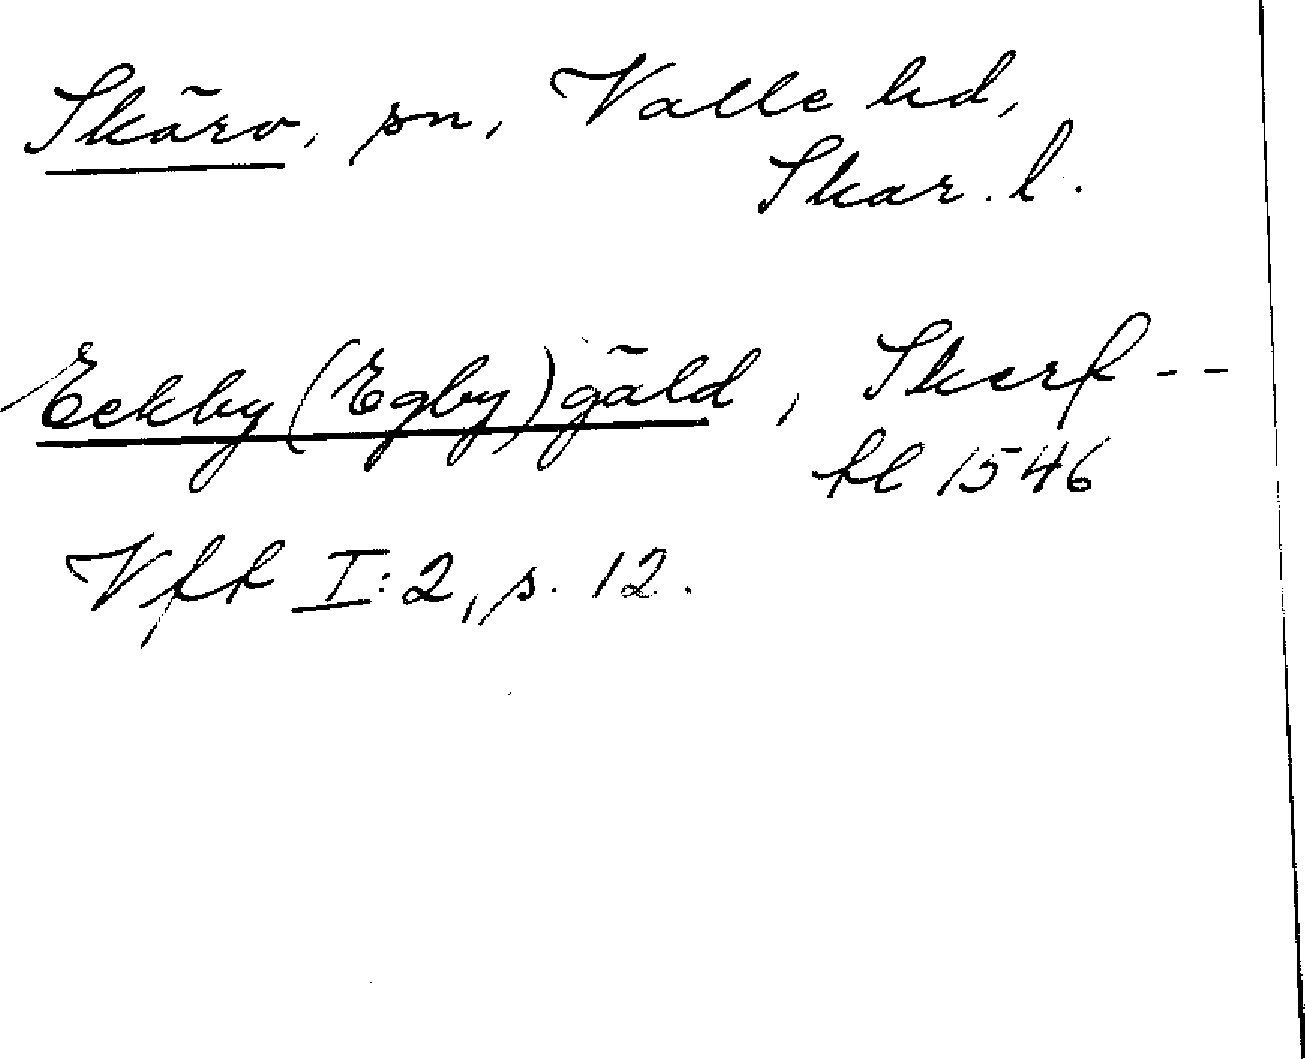 Skärv, sn, Valle hd,
Skar. l.
Eekby (Egby) gäld, Skerf --
kl 1546
Vff I:2, s. 12.